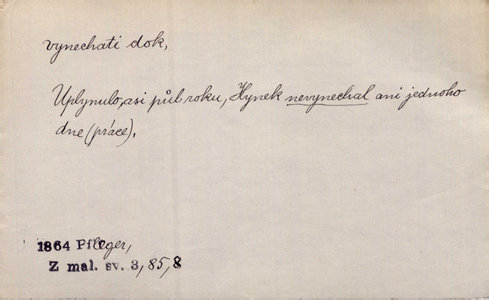 vynechati dok,
Uplynulo asi půl roku, Hynek nevynechal ani jednoho
dne (práce).
1864 Pfleger,
Z mal. sv. 3, 85, 8